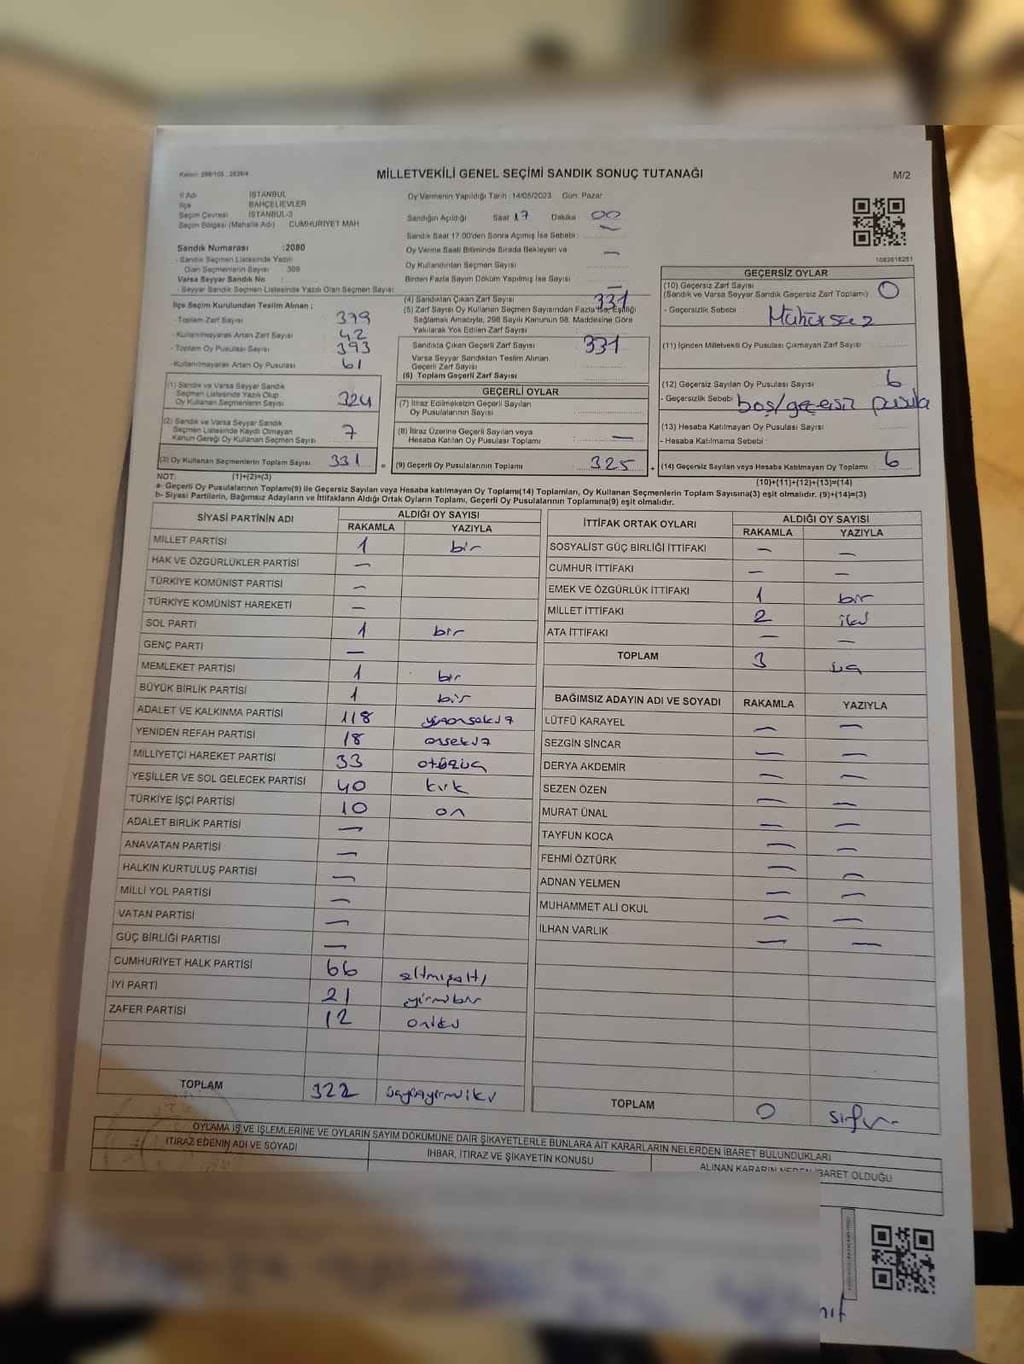 MİLLETVEKİLİ GENEL SEÇİMİ SANDIK SONUÇ TUTANAĞI
M/2
İl Adı İSTANBUL
İlçe BAHÇELİEVLER
Seçim Çevresi İSTANBUL-3
Seçim Bölgesi (Mahalle Adı) CUMHURİYET MAH
Sandık Numarası :2080
- Sandık Seçmen Listesinde Yazılı
Olan Seçmenlerin Sayısı
Varsa Seyyar Sandık No
- Seyyar Sandık Seçmen Listesinde Yazılı Olan Seçmen Sayısı
Oy Vermenin Yapıldığı Tarih :14/05/2023 Gün: Pazar
Sandığın Açıldığı Saat 17 Dakika 00
Sandık Saat 17.00'den Sonra Açılmış İse Sebebi
Oy Verme Saati Bitiminde Sırada Bekleyen ve —
Oy Kullandırılan Seçmen Sayısı
Birden Fazla Sayım Döküm Yapılmış İse Sayısı —
İlçe Seçim Kurulundan Teslim Alınan :
- Toplam Zarf Sayısı 379
- Kullanılmayarak Artan Zarf Sayısı 42
- Toplam Oy Pusulası Sayısı 393
- Kullanılmayarak Artan Oy Pusulası 61
(1) Sandık ve Varsa Seyyar Sandık
Seçmen Listesinde Yazılı Olup
Oy Kullanan Seçmenlerin Sayısı 324
(2) Sandık ve Varsa Seyyar Sandık
Seçmen Listesinde Kaydı Olmayan
Kanun Gereği Oy Kullanan Seçmen Sayısı 7
(3) Oy Kullanan Seçmenlerin Toplam Sayısı 331
(4) Sandıktan Çıkan Zarf Sayısı 331
(5) Zarf Sayısı Oy Kullanan Seçmen Sayısından Fazla İse, Eşitliği
Sağlamak Amacıyla, 298 Sayılı Kanunun 98. Maddesine Göre
Yakılarak Yok Edilen Zarf Sayısı
Sandıkta Çıkan Geçerli Zarf Sayısı 331
Varsa Seyyar Sandıktan Teslim Alınan
Geçerli Zarf Sayısı
(6) Toplam Geçerli Zarf Sayısı
GEÇERLİ OYLAR
(7) İtiraz Edilmeksizin Geçerli Sayılan
Oy Pusulalarının Sayısı
(8) İtiraz Üzerine Geçerli Sayılan veya
Hesaba Katılan Oy Pusulası Toplamı —
(9) Geçerli Oy Pusulalarının Toplamı 325
GEÇERSİZ OYLAR
(10) Geçersiz Zarf Sayısı 0
(Sandık ve Varsa Seyyar Sandık Geçersiz Zarf Toplamı)
- Geçersizlik Sebebi Mühürsüz
(11) İçinden Milletvekili Oy Pusulası Çıkmayan Zarf Sayısı
(12) Geçersiz Sayılan Oy Pusulası Sayısı 6
- Geçersizlik Sebebi boş/geçersiz pusula
(13) Hesaba Katılmayan Oy Pusulası Sayısı
- Hesaba Katılmama Sebebi
(14) Geçersiz Sayılan veya Hesaba Katılmayan Oy Toplamı 6
NOT: (1)+(2)=(3) (10)+(11)+(12)+(13)=(14)
a- Geçerli Oy Pusulaları Toplamı(9) ile Geçersiz Sayılan veya Hesaba katılmayan Oy Toplamı(14) Toplamları, Oy Kullanan Seçmenlerin Toplam Sayısına(3) eşit olmalıdır. (9)+(14)=(3)
b- Siyasi Partilerin, Bağımsız Adayların ve İttifakların Aldığı Ortak Oyların Toplamı, Geçerli Oy Pusulalarının Toplamına(9) eşit olmalıdır.
SİYASİ PARTİNİN ADI ALDIĞI OY SAYISI
RAKAMLA YAZIYLA
MİLLET PARTİSİ 1 bir
HAK VE ÖZGÜRLÜKLER PARTİSİ —
TÜRKİYE KOMÜNİST PARTİSİ —
TÜRKİYE KOMÜNİST HAREKETİ —
SOL PARTİ 1 bir
GENÇ PARTİ —
MEMLEKET PARTİSİ 1 bir
BÜYÜK BİRLİK PARTİSİ 1 bir
ADALET VE KALKINMA PARTİSİ 118 yüzonsekiz
YENİDEN REFAH PARTİSİ 18 onsekiz
MİLLİYETÇİ HAREKET PARTİSİ 33 otuzüç
YEŞİLLER VE SOL GELECEK PARTİSİ 40 kırk
TÜRKİYE İŞÇİ PARTİSİ 10 on
ADALET BİRLİK PARTİSİ —
ANAVATAN PARTİSİ —
HALKIN KURTULUŞ PARTİSİ —
MİLLİ YOL PARTİSİ —
VATAN PARTİSİ —
GÜÇ BİRLİĞİ PARTİSİ —
CUMHURİYET HALK PARTİSİ 66 altmışaltı
İYİ PARTİ 21 yirmibir
ZAFER PARTİSİ 12 oniki
TOPLAM 322 üçyüzyirmiiki
İTTİFAK ORTAK OYLARI ALDIĞI OY SAYISI
RAKAMLA YAZIYLA
SOSYALİST GÜÇ BİRLİĞİ İTTİFAKI — —
CUMHUR İTTİFAKI — —
EMEK VE ÖZGÜRLÜK İTTİFAKI 1 bir
MİLLET İTTİFAKI 2 iki
ATA İTTİFAKI — —
TOPLAM 3 üç
BAĞIMSIZ ADAYIN ADI VE SOYADI RAKAMLA YAZIYLA
LÜTFÜ KARAYEL — —
SEZGİN SİNCAR — —
DERYA AKDEMİR — —
SEZEN ÖZEN — —
MURAT ÜNAL — —
TAYFUN KOCA — —
FEHMİ ÖZTÜRK — —
ADNAN YELMEN — —
MUHAMMET ALİ OKUL — —
İLHAN VARLIK — —
TOPLAM 0 sıfır
OYLAMA İŞ VE İŞLEMLERİNE VE OYLARIN SAYIM DÖKÜMÜNE DAİR ŞİKAYETLERLE BUNLARA AİT KARARLARIN NELERDEN İBARET BULUNDUKLARI
İTİRAZ EDENİN ADI VE SOYADI İHBAR, İTİRAZ VE ŞİKAYETİN KONUSU ALINAN KARARIN NEDEN İBARET OLDUĞU